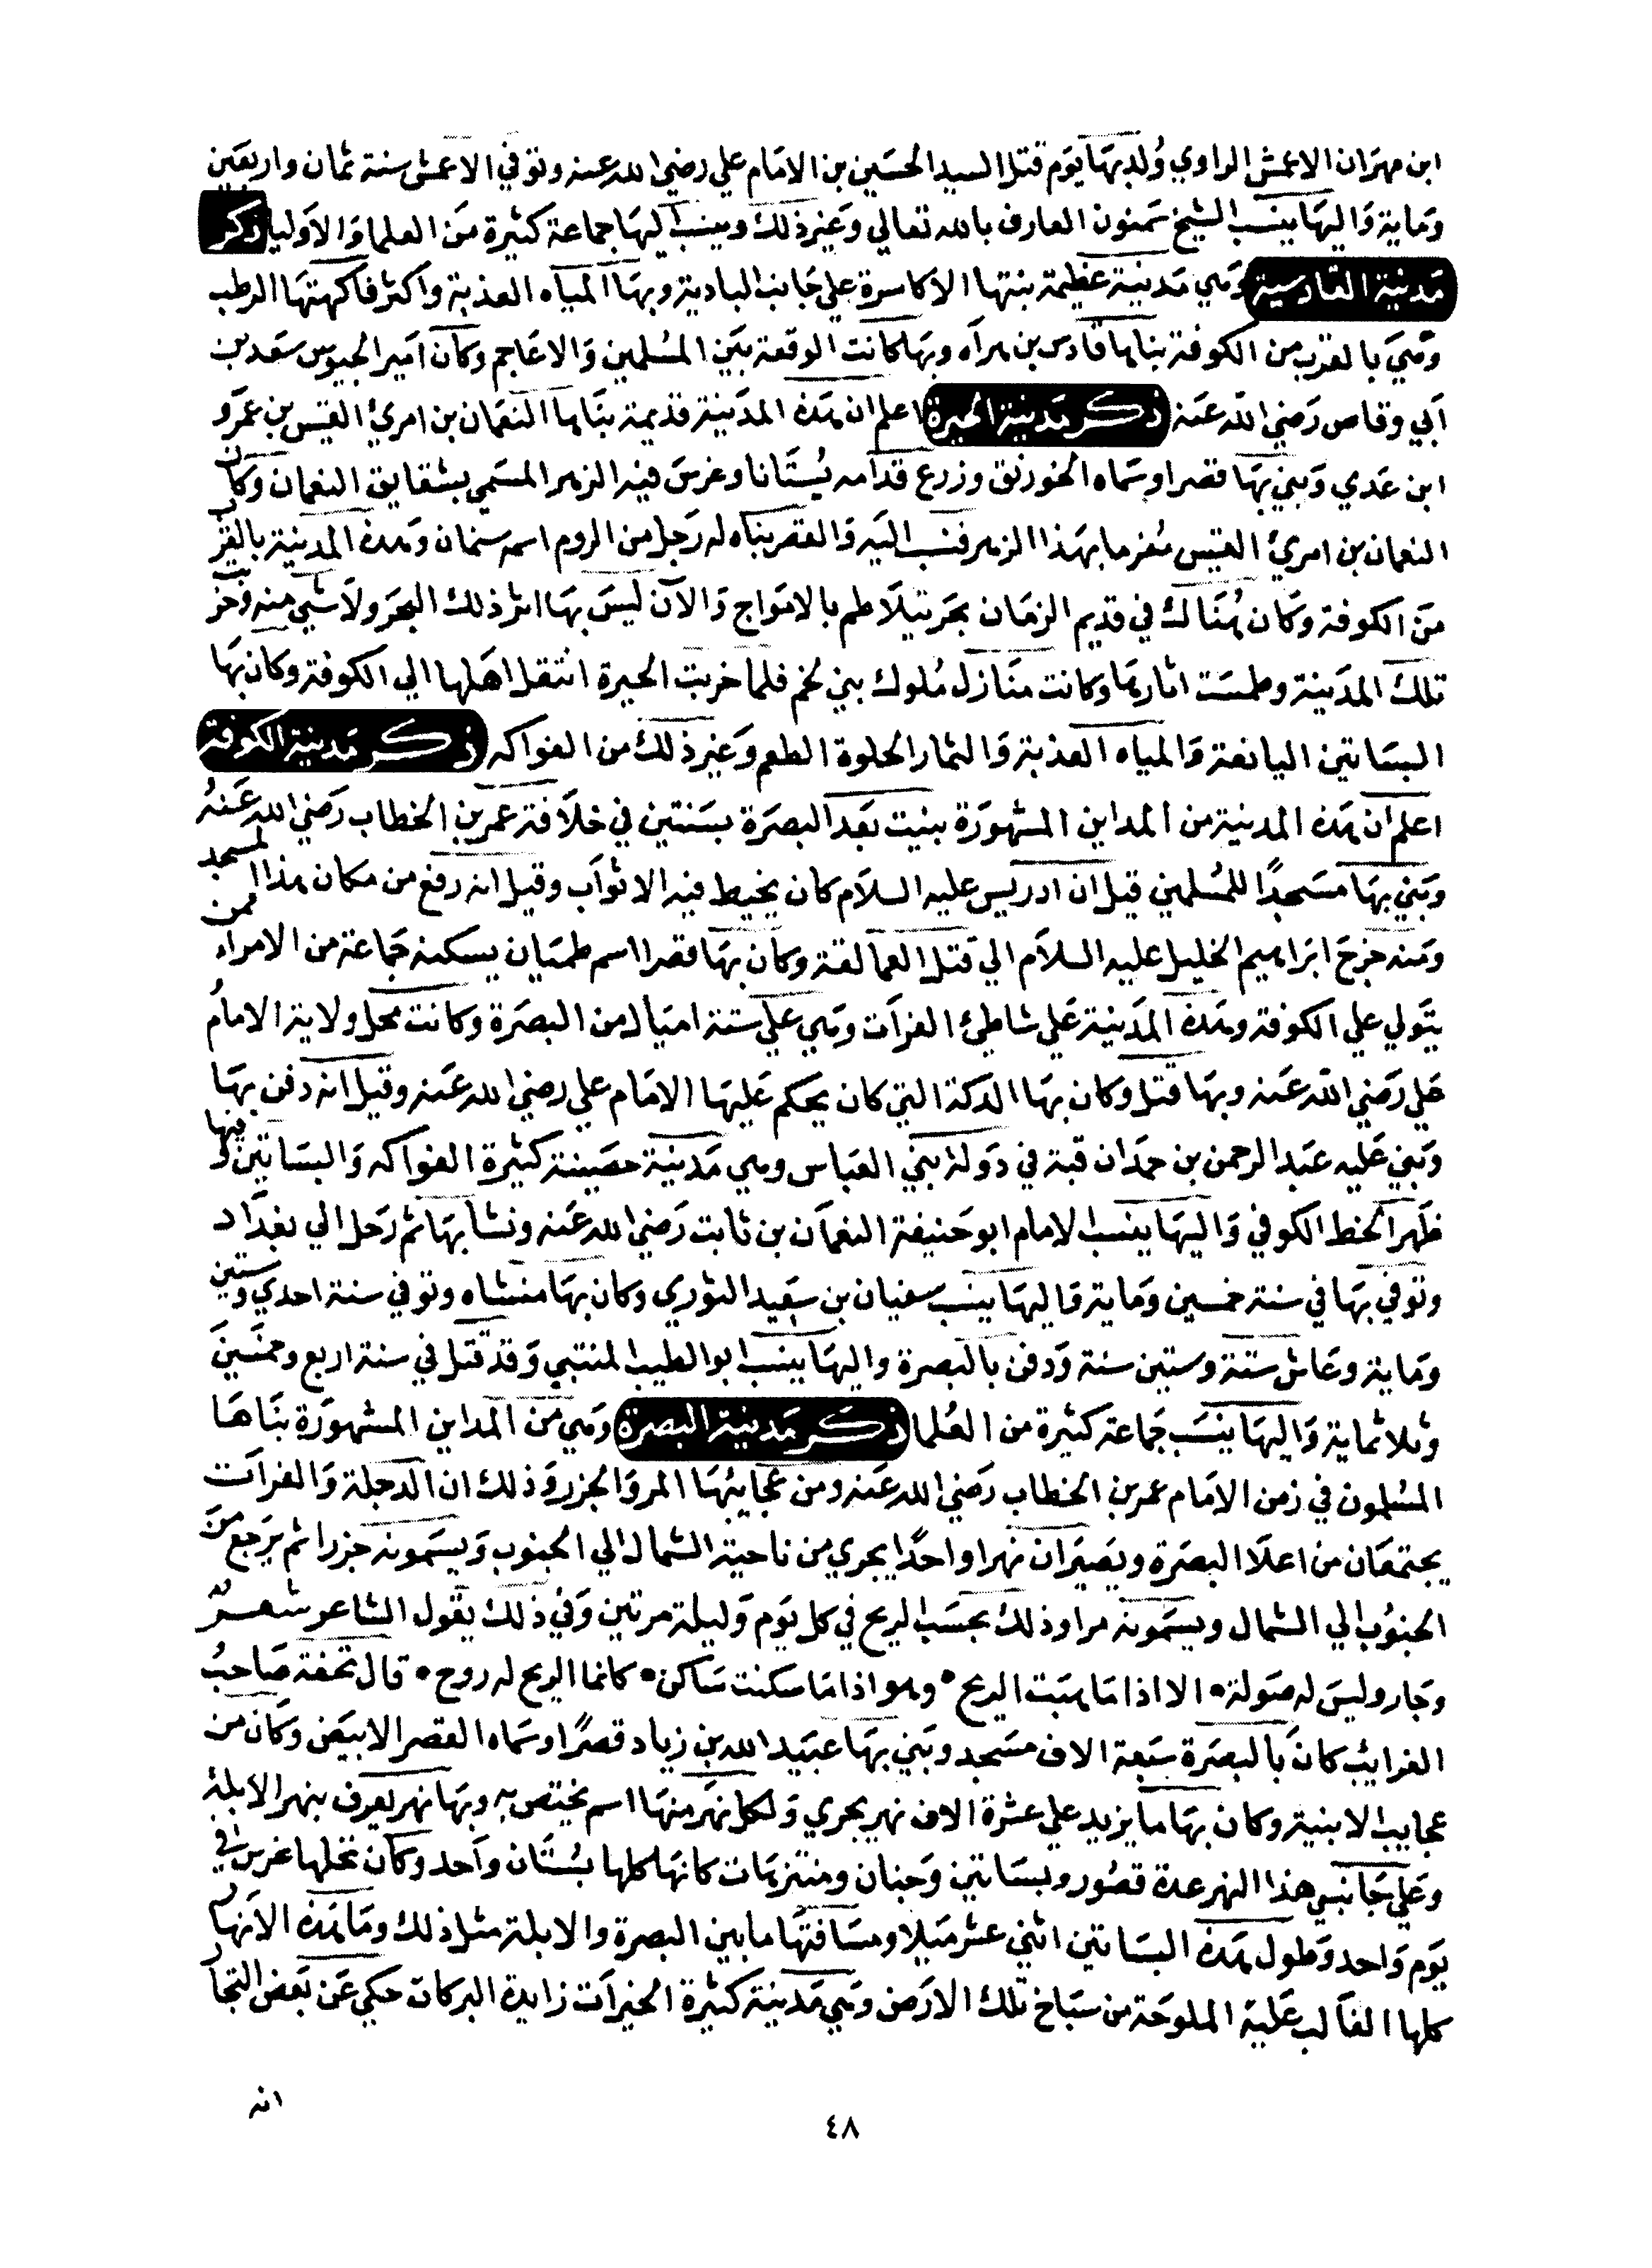 ابن مهران الاعمش الراوي ولد بها يوم قتل السيد الحسين بن الامام علي رضي الله عنه وتوفي الاعمش سنة ثمان واربعين
وماية واليها ينسب الشيخ سمنون العارف بالله تعالي وغير ذلك وينسب اليها جماعة كثيرة من العلما والاوليا ذكر
مدينة القادسية وهي مدينة عظيمة بنتها الاكاسرة علي جانب البادية وبها المياه العذبة واكثر فاكهتها الرطب
وهي بالقرب من الكوفة بناها قادس بن هراه وبها كانت الوقعة بين المسلمين والاعاجم وكان امير الجيوس سعد بن
ابي وقاص رضي الله عنه ذكر مدينة الحيرة اعلم ان هذه المدينة قديمة بناها النعمان بن امرئ القيس بن عمرو
ابن عدي وبني بها قصرا وسماه الخورنق وزرع قدامه بستانا وغرس فيه الزهر المسمي بشقايق النعمان وكان
النعمان بن امرئ القيس مغرما بهذا الزهر فنسب اليه والقصر بناه له رجل من الروم اسمه سنمان وهذه المدينة بالقرب
من الكوفة وكان هناك في قديم الزمان بحر يتلاطم بالامواج والآن ليس بها اثر ذلك البحر ولا شي منه وخربت
تلك المدينة وطمست اثارها وكانت منازل ملوك بني لخم فلما خربت الحيرة انتقل اهلها الي الكوفة وكان بها
البساتين اليانعة والمياه العذبة والثمار الحلوة الطعم وغير ذلك من الفواكه ذكر مدينة الكوفة
اعلم ان هذه المدينة من المداين المشهورة بنيت بعد البصرة بسنتين في خلافة عمر بن الخطاب رضي الله عنه
وبني بها مسجدًا للمسلمين قيل ان ادريس عليه السلام كان يخيط فيه الاثواب وقيل انه رفع من مكان هذا المسجد
ومنه خرج ابراهيم الخليل عليه السلام الي قتل العمالقة وكان بها قصرا اسم طميان يسكنه جماعة من الامراء ممن
يتولي علي الكوفة وهذه المدينة علي شاطئ الفرات وهي علي ستة اميال من البصرة وكانت محل ولاية الامام
علي رضي الله عنه وبها قتل وكان بها الدكة التي كان يحكم عليها الامام علي رضي الله عنه وقيل انه دفن بها
وبني عليه عبد الرحمن بن حمدان قبة في دولة بني العباس وهي مدينة حصينة كثيرة الفواكه والبساتين وفيها
ظهر الخط الكوفي واليها ينسب الامام ابو حنيفة النعمان بن ثابت رضي الله عنه ونشأ بها ثم رحل الي بغداد
وتوفي بها في سنة خمسين وماية واليها ينسب سفيان بن سعيد الثوري وكان بها منشاه وتوفي سنة احدي وستين
وماية وعاش ستة وستين سنة ودفن بالبصرة واليها ينسب ابو الطيب المنتبي وقد قتل في سنة اربع وخمسين
وثلاثماية واليها ينسب جماعة كثيرة من العلما ذكر مدينة البصرة وهي من المداين المشهورة بناها
المسلمون في زمن الامام عمر بن الخطاب رضي الله عنه ومن عجايبها المر والجزر وذلك ان الدجلة والفرات
يجتمعان من اعلا البصرة ويصيران نهرا واحدًا يجري من ناحية الشمال الي الجنوب ويسمونه جزرا ثم يرجع من
الجنوب الي الشمال ويسمونه مرا وذلك بحسب الريح في كل يوم وليلة مرتين وفي ذلك يقول الشاعر شعر
وجار وليس له صولة • الا اذا ما هبت الريح • وهو اذا ما سكنت ساكن • كانما الريح له روح • قال تحفة صاحب
الغرايب كان بالبصرة سبعة الاف مسجد وبني بها عبيد الله بن زياد قصرًا وسماه القصر الابيض وكان من
عجايب الابنية وكان بها ما يزيد علي عشرة الاف نهر يجري ولكل نهر منها اسم يختص به وبها نهر يعرف بنهر الابلة
وعلي جانبي هذا النهر عدة قصور وبساتين وجنان ومنتزهات كانها كلها بستان واحد وكان نخلها غرس في
يوم واحد وطول هذه البساتين اثني عشر ميلا ومسافتها ما بين البصرة والابلة مثل ذلك وما هذه الانهار
كلها الغالب علية الملوحة من سباخ تلك الارض وهي مدينة كثيرة الخيرات زايدة البركات حكي عن بعض التجار
انه
٤٨